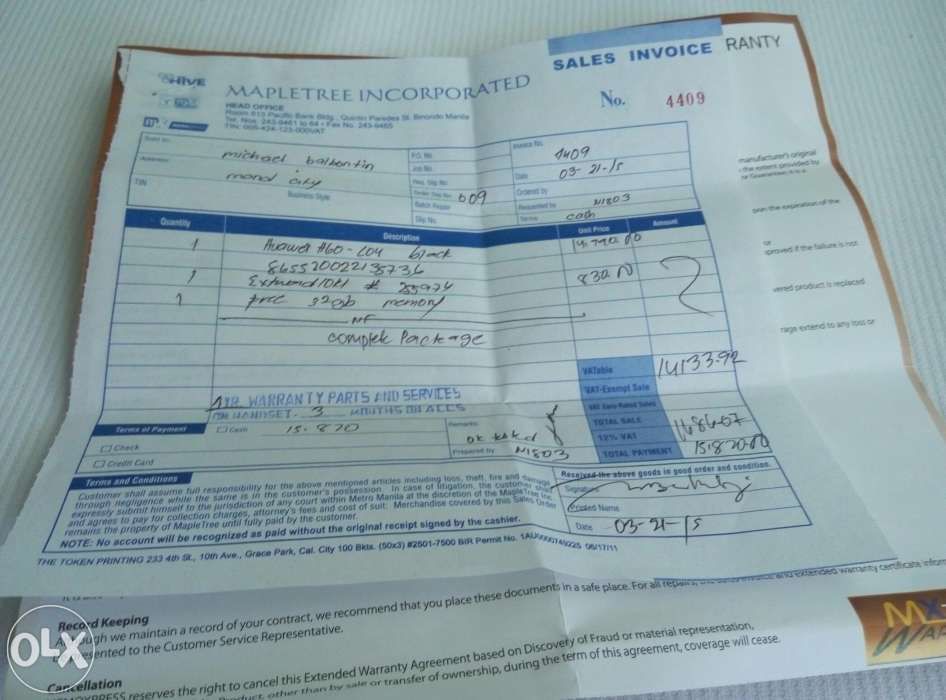 SALES INVOICE RANTY
HIVE
MAPLETREE INCORPORATED
No. 4409
HEAD OFFICE
Room 613 Pacific Bank Bldg., Quintin Paredes St. Binondo Manila
Tel. Nos. 243-9461 to 64 • Fax No. 243-9465
TIN: 005-424-123-000VAT
Sold to: michael
P.O. No.
Invoice No. 4409
Address: city
Job No.
Date 03-21-15
TIN
Business Style
609
Ordered by
Requested by N1803
Slip No.
Terms cash
Quantity Description Unit Price Amount
1 Huawei H60-L04 black
1
1 free 32gb memory
NF
Package
830
VATable 14133.92
VAT-Exempt Sale
VAT Zero-Rated Sales
TOTAL SALE
12% VAT
TOTAL PAYMENT 15,820.00
1YR WARRANTY PARTS AND SERVICES
ON HANDSET. 3 MONTHS ON ACCS
Terms of Payment
Cash 15,820
Check
Credit Card
Remarks:
Prepared by N1803
Terms and Conditions
Customer shall assume full responsibility for the above mentioned articles including loss, theft, fire and damage
through negligence while the same is in the customer's possession. In case of litigation, the customer shall
expressly submit himself to the jurisdiction of any court within Metro Manila at the discretion of the MapleTree Inc.
and agrees to pay for collection charges, attorney's fees and cost of suit. Merchandise covered by this Sales Order
remains the property of MapleTree until fully paid by the customer.
NOTE: No account will be recognized as paid without the original receipt signed by the cashier.
Received the above goods in good order and condition.
Signature
Printed Name
Date 03-21-15
THE TOKEN PRINTING 233 4th St., 10th Ave., Grace Park, Cal. City 100 Bkts. (50x3) #2501-7500 BIR Permit No.
manufacturer's original
the extent provided by
pon the expiration of the
or
pproved if the failure is not
vered product is replaced
rage extend to any loss or
extended warranty certificate inform
Record Keeping
Although we maintain a record of your contract, we recommend that you place these documents in a safe place. For all
presented to the Customer Service Representative.
Cancellation
reserves the right to cancel this Extended Warranty Agreement based on Discovery of Fraud or material representation,
other than by sale or transfer of ownership, during the term of this agreement, coverage will cease.
MX
WA
OLX